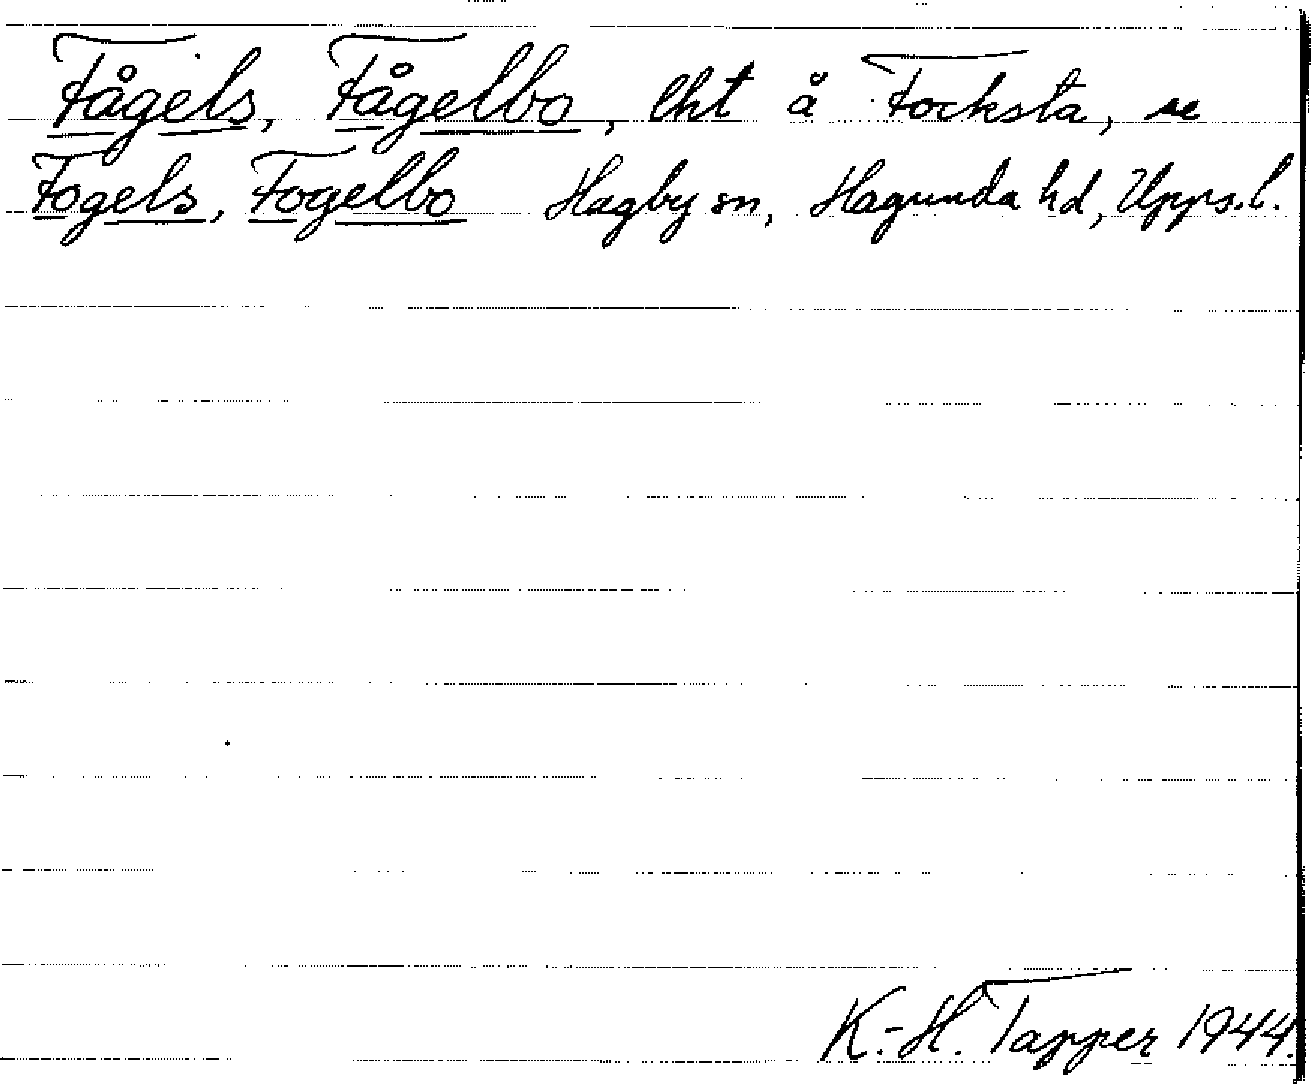 Fågels, Fågelbo, lht å Focksta, se
Fogels, Fogelbo Hagby sn, Hagunda hd, Upps.l.
K.-H. Tapper 1944.